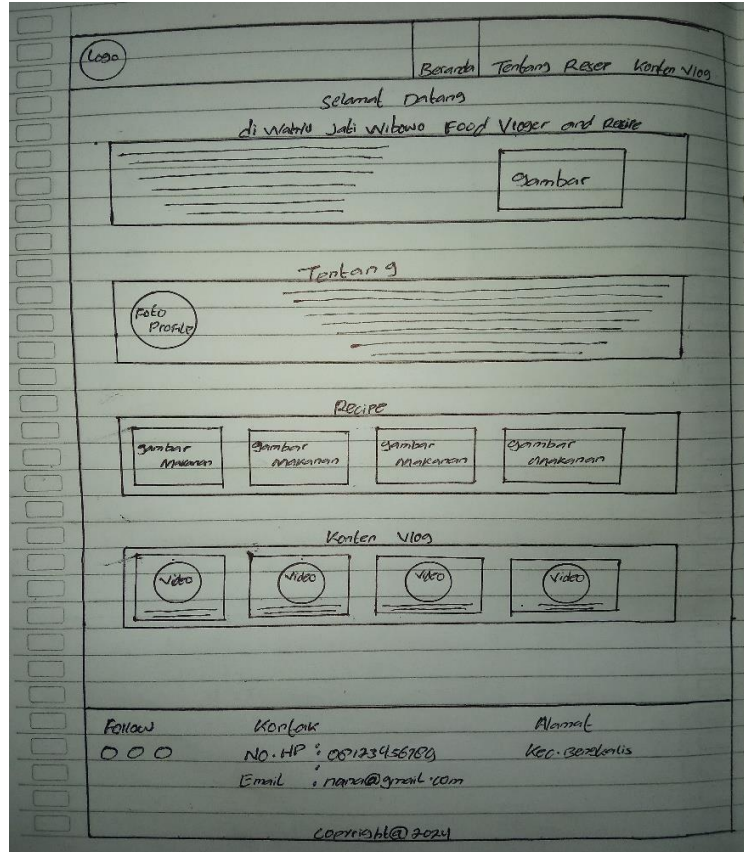 Logo
Beranda Tentang Resep Konten Vlog
Selamat Datang
di Wahyu Jati Wibowo Food Vloger and Recipe
Gambar
Tentang
Foto
Profile
Recipe
gambar
Makanan
gambar
Makanan
gambar
Makanan
gambar
Makanan
Konten Vlog
Video
Video
Video
Video
Follow
Kontak
Alamat
No. HP :
Kec. Bengkalis
Email : nana@gmail.com
Copyright@2024